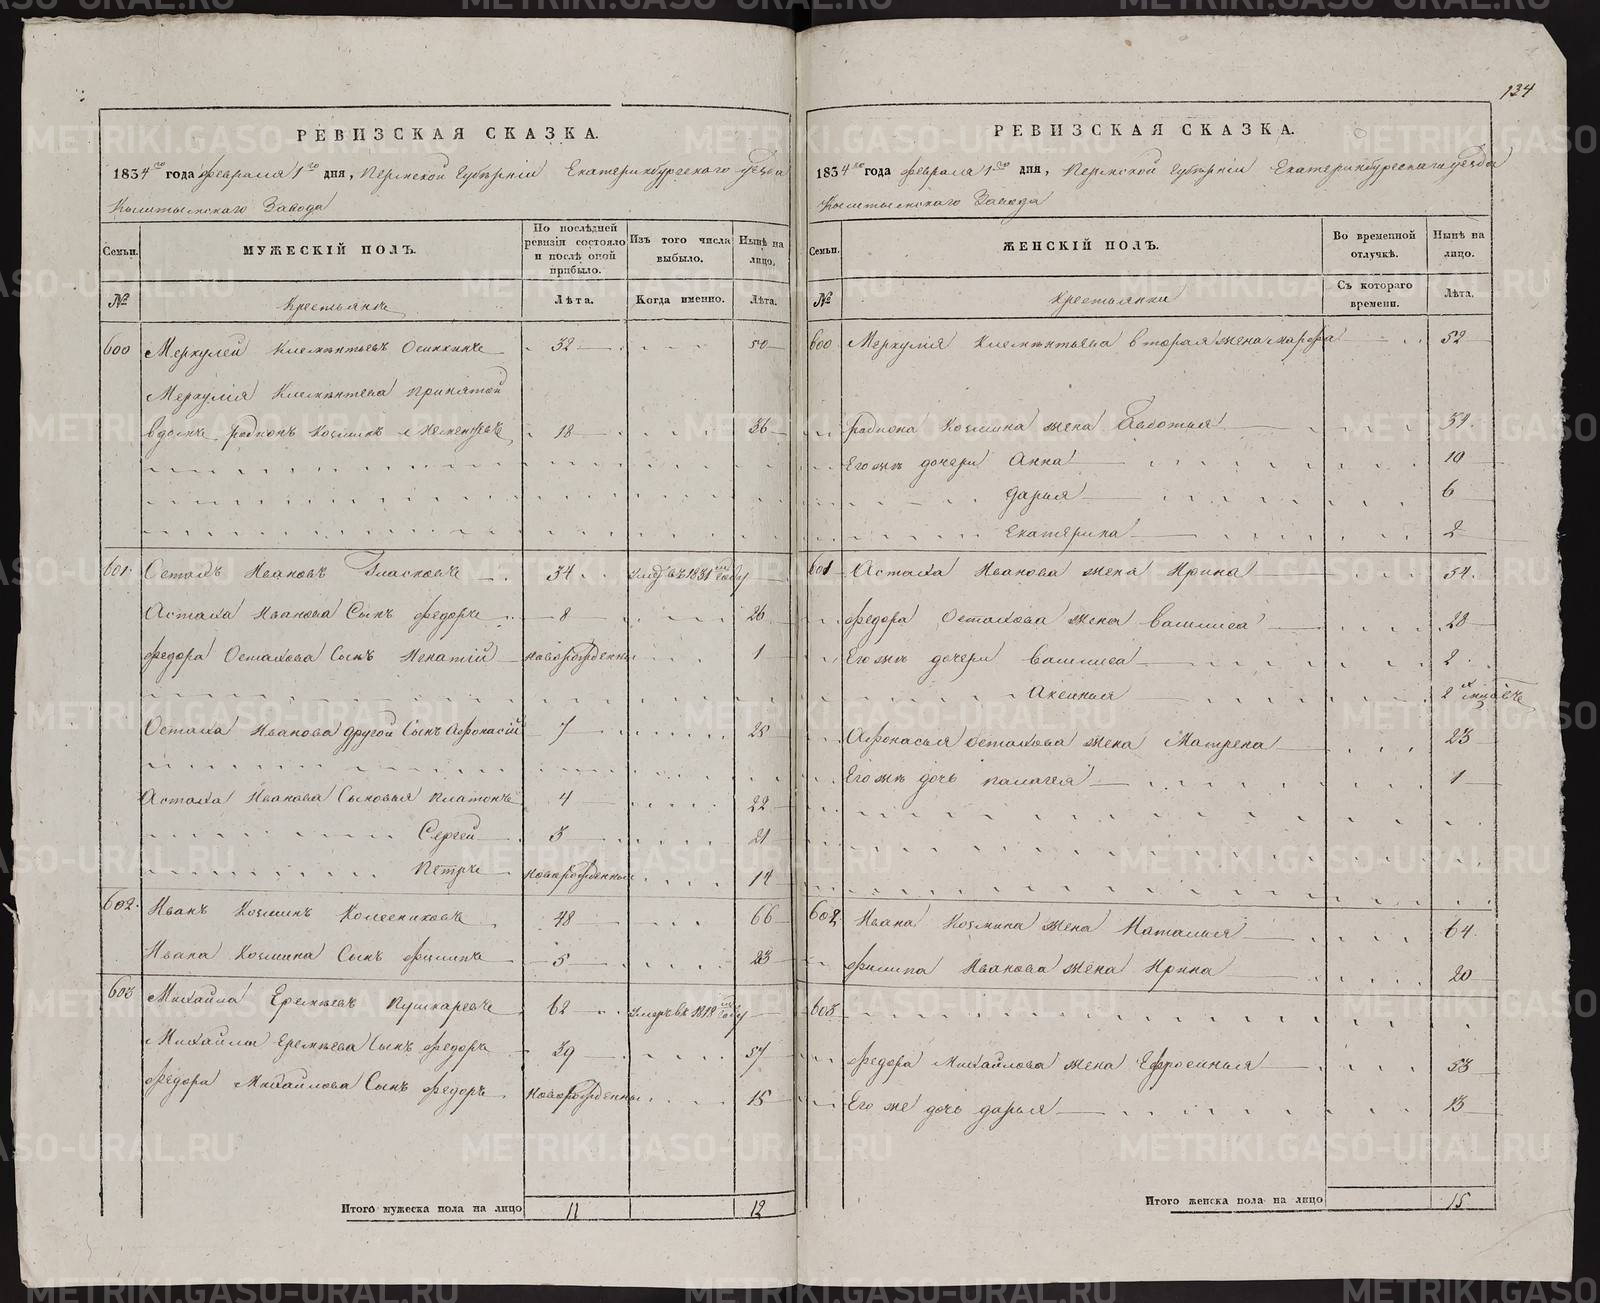 134
РЕВИЗСКАЯ СКАЗКА.
1834го года февраля 1го дня, Пермской Губерніи Екатеринбургского уезда
Кыштымского Завода
Семьи.
МУЖЕСКІЙ ПОЛЪ.
По последней ревизіи состояло и послѣ оной прибыло.
Изъ того числа выбыло.
Нынѣ на лицо.
№
Крестьяне
Лѣта.
Когда именно.
Лѣта.
600 Меркулей Клементьевъ 32 50
Меркулія Клементева принятой
в домъ родионъ Козминъ 18 36
601 Остахъ Ивановъ Гласковъ 34 умеръ въ 1831м году
Астаха Иванова Сынъ федоръ 8 26
федора Остахова Сынъ Игнатій новорожденный 1
Остаха Иванова другой Сынъ Афонасій 7 25
Астаха Иванова Сыновья платонъ 4 22
Сергей 3 21
Петръ новорожденный 14
602 Иванъ Козминъ Колесниковъ 48 66
Ивана Козмина Сынъ филипъ 5 23
603 Михайла Еремѣевъ Пушкаревъ 62 умеръ въ 1818м году
Михайлы Еремѣева Сынъ федоръ 39 57
федора Михайлова Сынъ федоръ новорожденный 15
Итого мужеска пола на лицо 11 12
РЕВИЗСКАЯ СКАЗКА.
1834го года февраля 1го дня, Пермской Губерніи Екатеринбургскаго уезда
Кыштымского Завода
Семьи.
ЖЕНСКІЙ ПОЛЪ.
Во временной отлучкѣ.
Нынѣ на лицо.
№
Крестьянки
Съ котораго времени.
Лѣта.
600 Меркулія Клементьева вторая жена марфа 52
родиона Козмина жена Авдотья
Его же дочери Анна 10
Дарья 6
Екатерина 2
601 Астаха Иванова жена Ирина 54
федора Остахова жена Василиса 28
Его же дочери Василиса 2
Аксинья 2х
Афонасья Остахова жена Матрена 23
Его же дочь палагея 1
602 Ивана Козмина жена Наталья 64
филипа Иванова жена Ирина 20
603
федора Михайлова жена Ефросинья 53
Его же дочь дарья 13
Итого женска пола на лицо 15